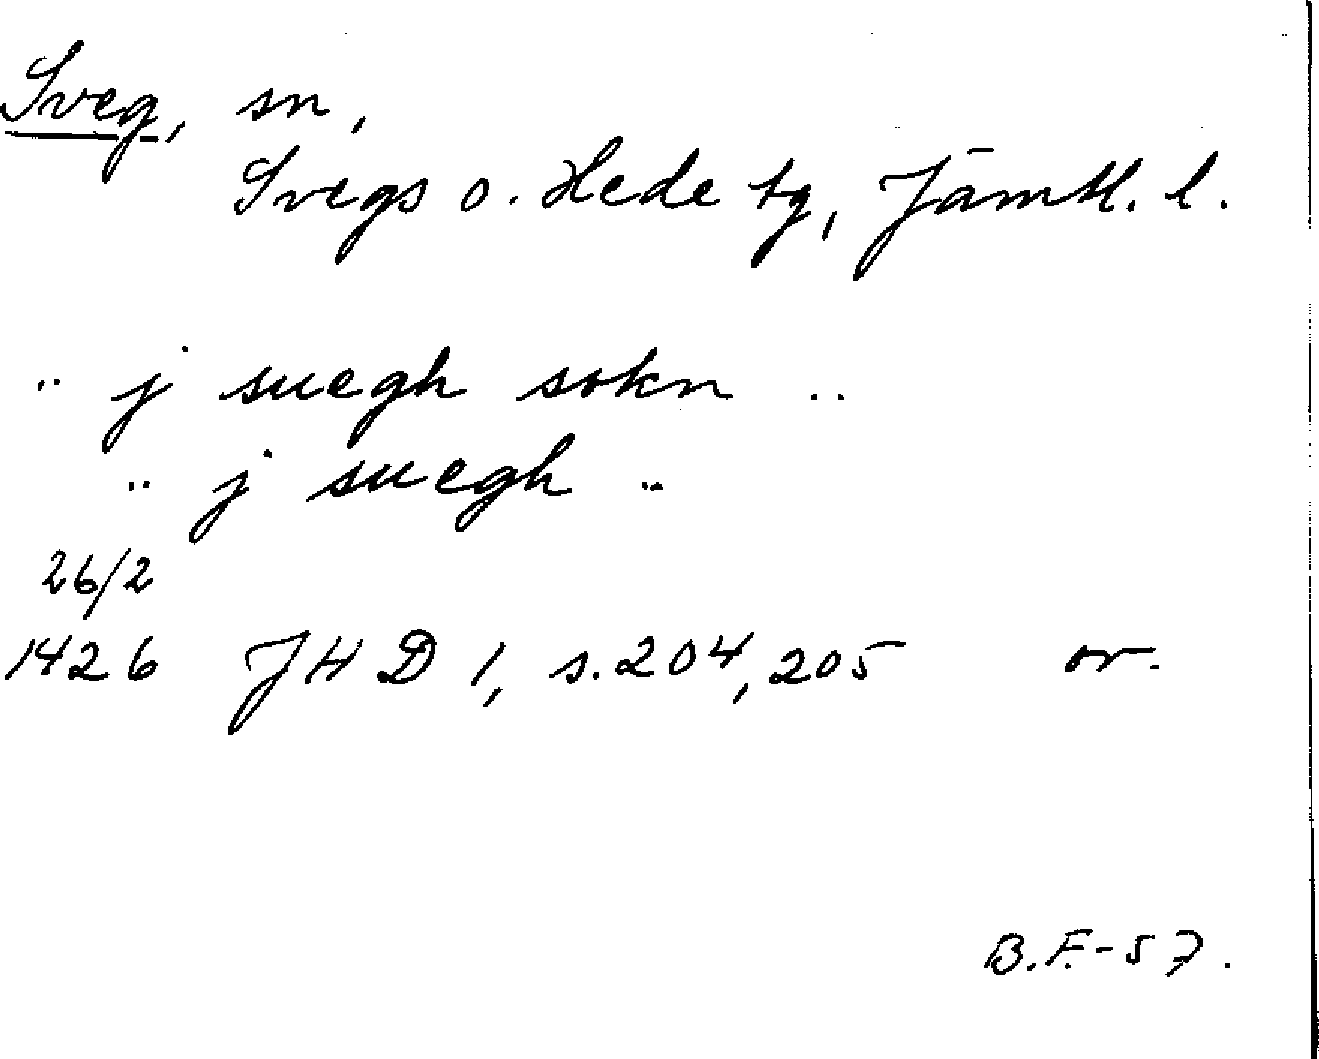 Sveg, sn,
Svegs o. Hede tg, Jämtl. l.
.. j suegh sokn ..
.. j suegh ..
26/2
1426 JHD 1, s. 204, 205 or.
B.F.-57.